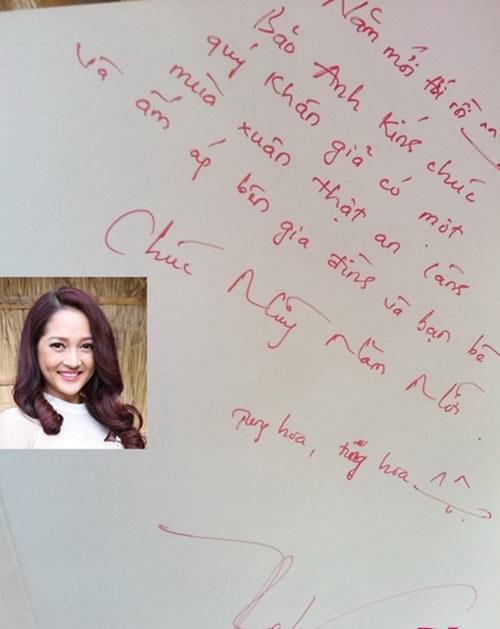 Năm mới tới rồi
Bảo Anh kính chúc
quý khán giả có một
mùa xuân thật an lành
và ấm áp bên gia đình và bạn bè
Chúc Mừng Năm Mới.
Tung hoa, tung hoa ^^